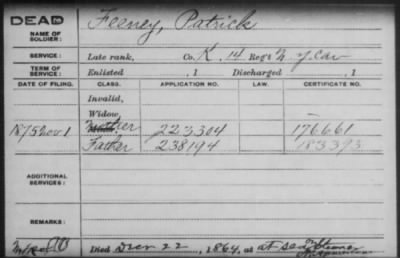 DEAD
NAME OF SOLDIER: Feeney, Patrick
SERVICE: Late rank, Co. K, 14 Reg't N Y Cav
TERM OF SERVICE: Enlisted , 1 Discharged , 1
DATE OF FILING. CLASS. APPLICATION NO. LAW. CERTIFICATE NO.
Invalid,
Widow,
1875 Nov 1 Mother 223304 176661
Father 238194 183393
ADDITIONAL SERVICES:
REMARKS:
Died 22, 1864, at at sea on Steamer